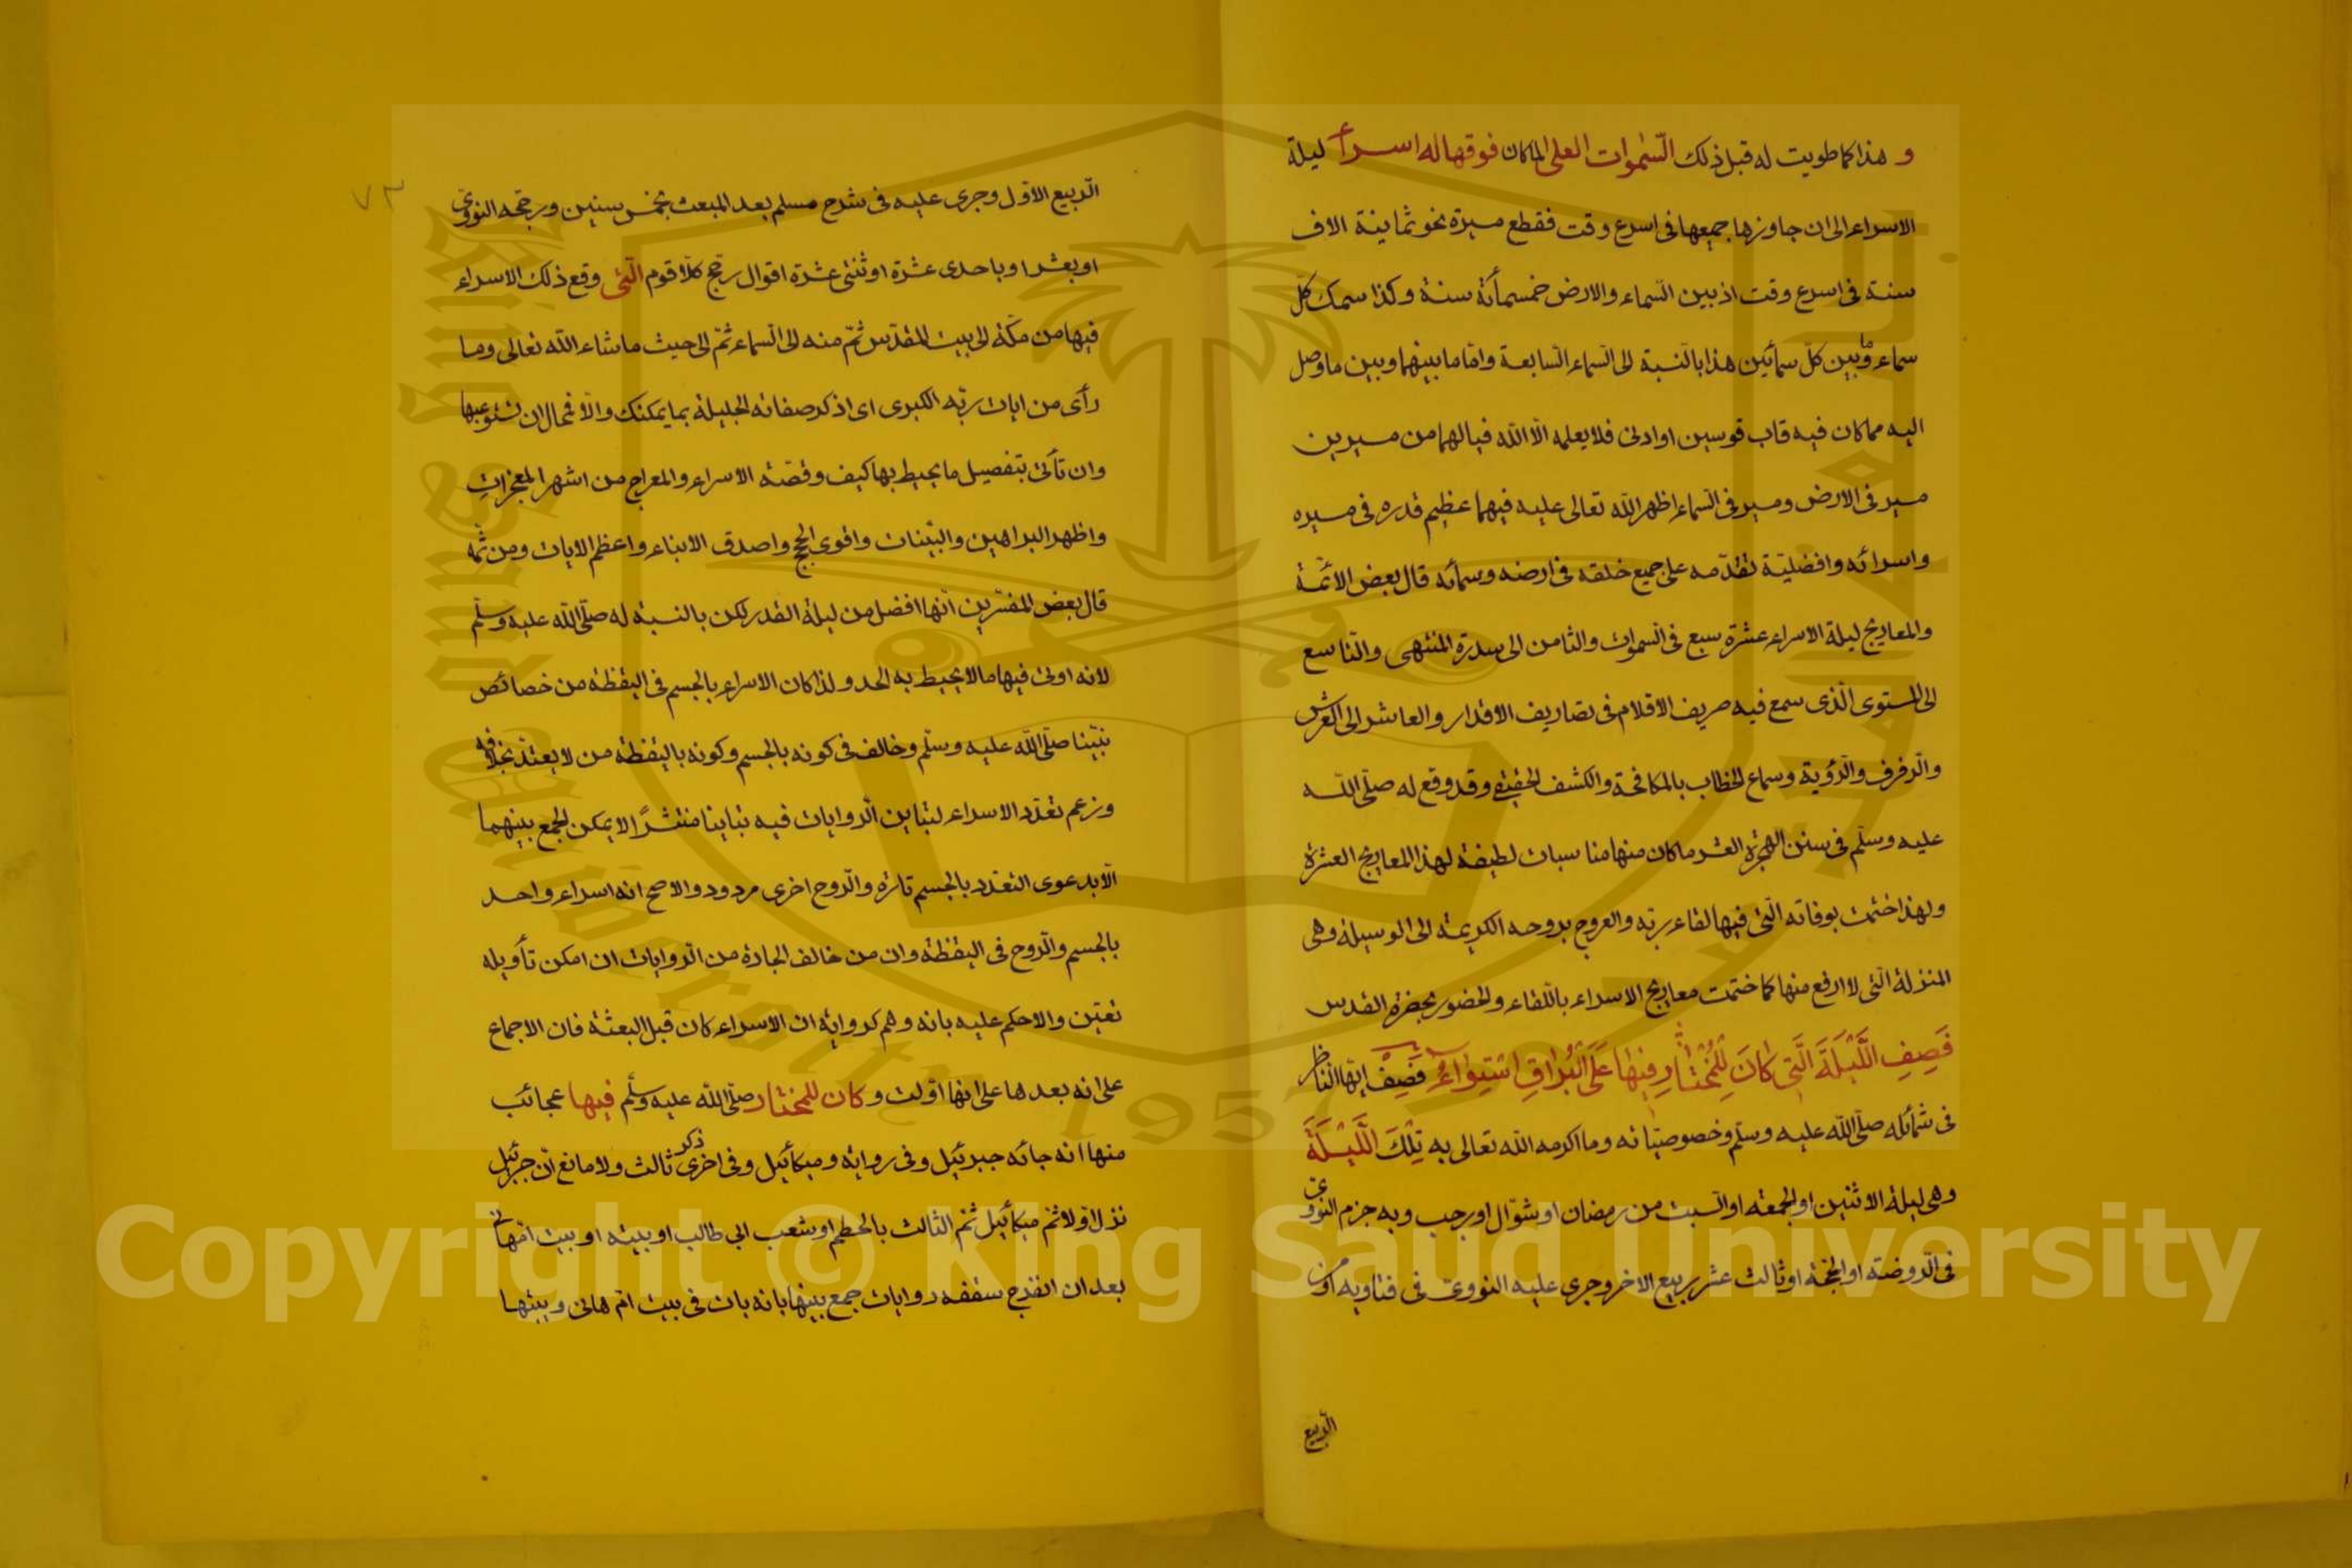 و هذا كما طويت له قبل ذلك السموات العلى لما كان فوقها له اسراء ليلة
الاسراء الى ان جاوزها جميعها فى اسرع وقت فقطع مسيرة نحو ثمانية الاف
سنة فى اسرع وقت اذ بين السماء والارض خمسمائة سنة وكذا سمك كل
سماء وما بين كل سمائين هذا بالنسبة الى السماء السابعة واما ما بينهما وبين ما وصل
اليه مما كان فيه قاب قوسين او ادنى فلا يعلمه الا الله فيا لهما من مسيرين
مسير فى الارض ومسير فى السماء اظهر الله تعالى عليه فيهما عظيم قدره فى مسيره
واسرائه وافضلية تقدمه على جميع خلقه فى ارضه وسمائه قال بعض الائمة
والمعاريج ليلة الاسراء عشرة سبع فى السموات والثامن الى سدرة المنتهى والتاسع
الى المستوى الذى سمع فيه صريف الاقلام فى تصاريف الاقدار والعاشر الى العرش
والرفرف والرؤية وسماع الخطاب بالمكافحة والكشف الحقيقى وقد وقع له صلى الله
عليه وسلم فى سنن الهجرة العشر ما كان منها مناسبات لطيفة لهذا المعاريج العشرة
ولهذا ختمت بوفاته التى فيها لقاء ربه والعروج بروحه الكريمة الى الوسيلة وهى
المنزلة التى لا ارفع منها كما ختمت معاريج الاسراء باللقاء والحضور بحضرة القدس
فَصِفِ اللَّيْلَةَ الَّتِى كَانَ لِلْمُخْتَارِ فِيْهَا عَلَى الْبُرَاقِ اسْتِوَاءُ فَصِفْ ايها الناظر
فى شمائله صلى الله عليه وسلم وخصوصياته وما اكرمه الله تعالى به تِلْكَ اللَّيْلَةَ
وهى ليلة الاثنين او الجمعة او السبت من رمضان او شوال او رجب وبه جزم النووى
فى الروضة او الحجة او ثالث عشر ربيع الاخر وجرى عليه النووى فى فتاويه او من
الربيع
٧٣
الربيع الاول وجرى عليه فى شرح مسلم بعد المبعث بخمس سنين ورجحه النووى
او بعشر او باحدى عشرة او ثنتى عشرة اقوال رجح كلا قوم التى وقع ذلك الاسراء
فيها من مكة الى بيت المقدس ثم منه الى السماء ثم الى حيث ما شاء الله تعالى وما
رأى من ايات ربه الكبرى اى اذكر صفاته الجليلة بما يمكنك والا فمحال ان تستوعبها
وان تأتى بتفصيل ما يحيط بها كيف وقصة الاسراء والمعراج من اشهر المعجزات
واظهر البراهين والبينات واقوى الحجج واصدق الانباء واعظم الايات ومن ثمه
قال بعض المفسرين انها افضل من ليلة القدر لكن بالنسبة له صلى الله عليه وسلم
لانه اوتى فيها مالا يحيط به الحد ولذا كان الاسراء بالجسم فى اليقظة من خصائص
نبينا صلى الله عليه وسلم وخالف فى كونه بالجسم وكونه باليقظة من لا يعتد بخلافه
وزعم تعدد الاسراء لتباين الروايات فيه تباينا منتشرًا لا يمكن الجمع بينهما
الا بدعوى التعدد بالجسم تارة والروح اخرى مردود والاصح انه اسراء واحد
بالجسم والروح فى اليقظة وان من خالف الجادة من الروايات ان امكن تأويله
تعين والا حكم عليه بانه وهم كرواية ان الاسراء كان قبل البعثة فان الاجماع
على انه بعدها على انها اولت و كان للمختار صلى الله عليه وسلم فيها عجائب
منها انه جائه جبرئيل وفى رواية وميكائيل وفى اخرى ذكر ثالث ولا مانع ان جبرئيل
نزل اولا ثم ميكائيل ثم الثالث بالحطم او بشعب ابى طالب او بيته او بيت ام هانى
بعد ان انفرج سقفه روايات جمع بينها بانه بات فى بيت ام هانى وبيتها